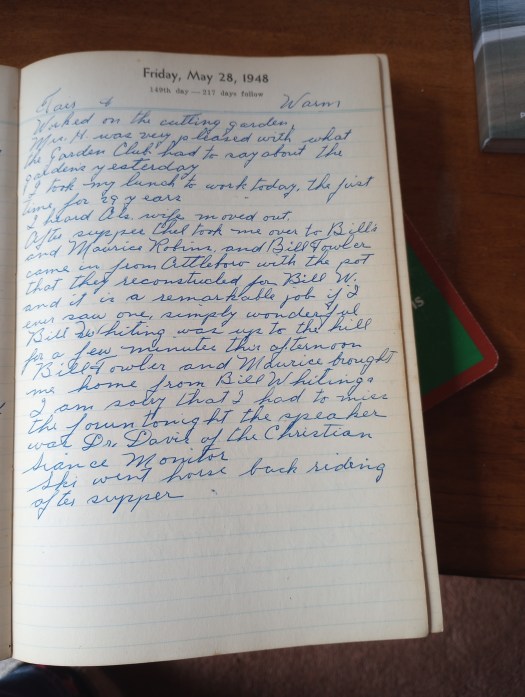 Friday, May 28, 1948
149th day — 217 days follow
Fair & Warm
Worked on the cutting garden.
Mrs. H. was very pleased with what
the Garden Club had to say about the
gardens yesterday
I took my lunch to work today, the first
time, for 29 years
I heard Als. wife moved out.
After supper Chel took me over to Bill's
and Maurice Robins, and Bill Fowler
came in from Attlebow with the pot
that they reconstructed for Bill W.
and it is a remarkable job if I
ever saw one, simply wonderful
Bill Whiting was up to the hill
for a few minutes this afternoon
Bill Fowler and Maurice brought
me home from Bill Whitings
I am sorry that I had to miss
the forum tonight the speaker
was Dr. Davis of the Christian
Siance Monitor
Ski went horse back riding
after supper